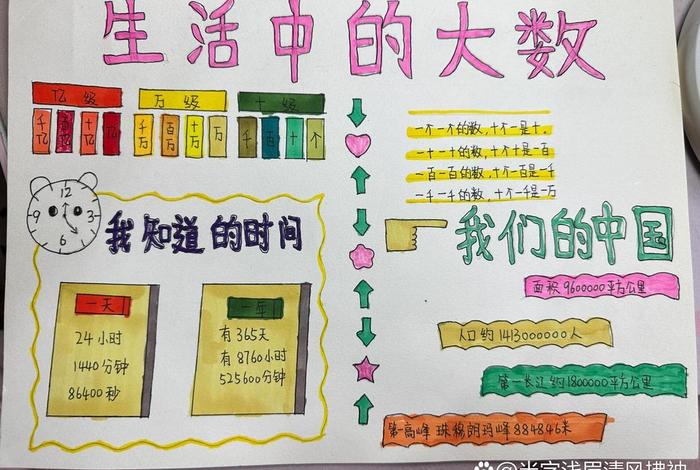 生活中的大数
亿级 万级 个级
千亿 百亿 十亿 亿 千万 百万 十万 万 千 百 十 个
一个一个的数,十个一是十。
一十一十的数,十个十是一百
一百一百的数,十个一百是一千
一千一千的数,十个一千是一万
12 3 6 9
我知道的时间
一天
24小时
1440分钟
86400秒
一年
有365天
有8760小时
525600分钟
我们的中国
面积9600000平方公里
人口约1413000000人
第一长江约1800000平方公里
第一高峰 珠穆朗玛峰884846米